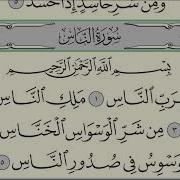 وَمِن شَرِّ حَاسِدٍ إِذَا حَسَدَ ٥
سُورَةُ النَّاسِ
بِسْمِ ٱللَّهِ ٱلرَّحْمَٰنِ ٱلرَّحِيمِ
بِرَبِّ ٱلنَّاسِ ١ مَلِكِ ٱلنَّاسِ
٣ مِن شَرِّ ٱلْوَسْوَاسِ ٱلْخَنَّاسِ
وَسْوِسُ فِى صُدُورِ ٱلنَّاسِ ٥